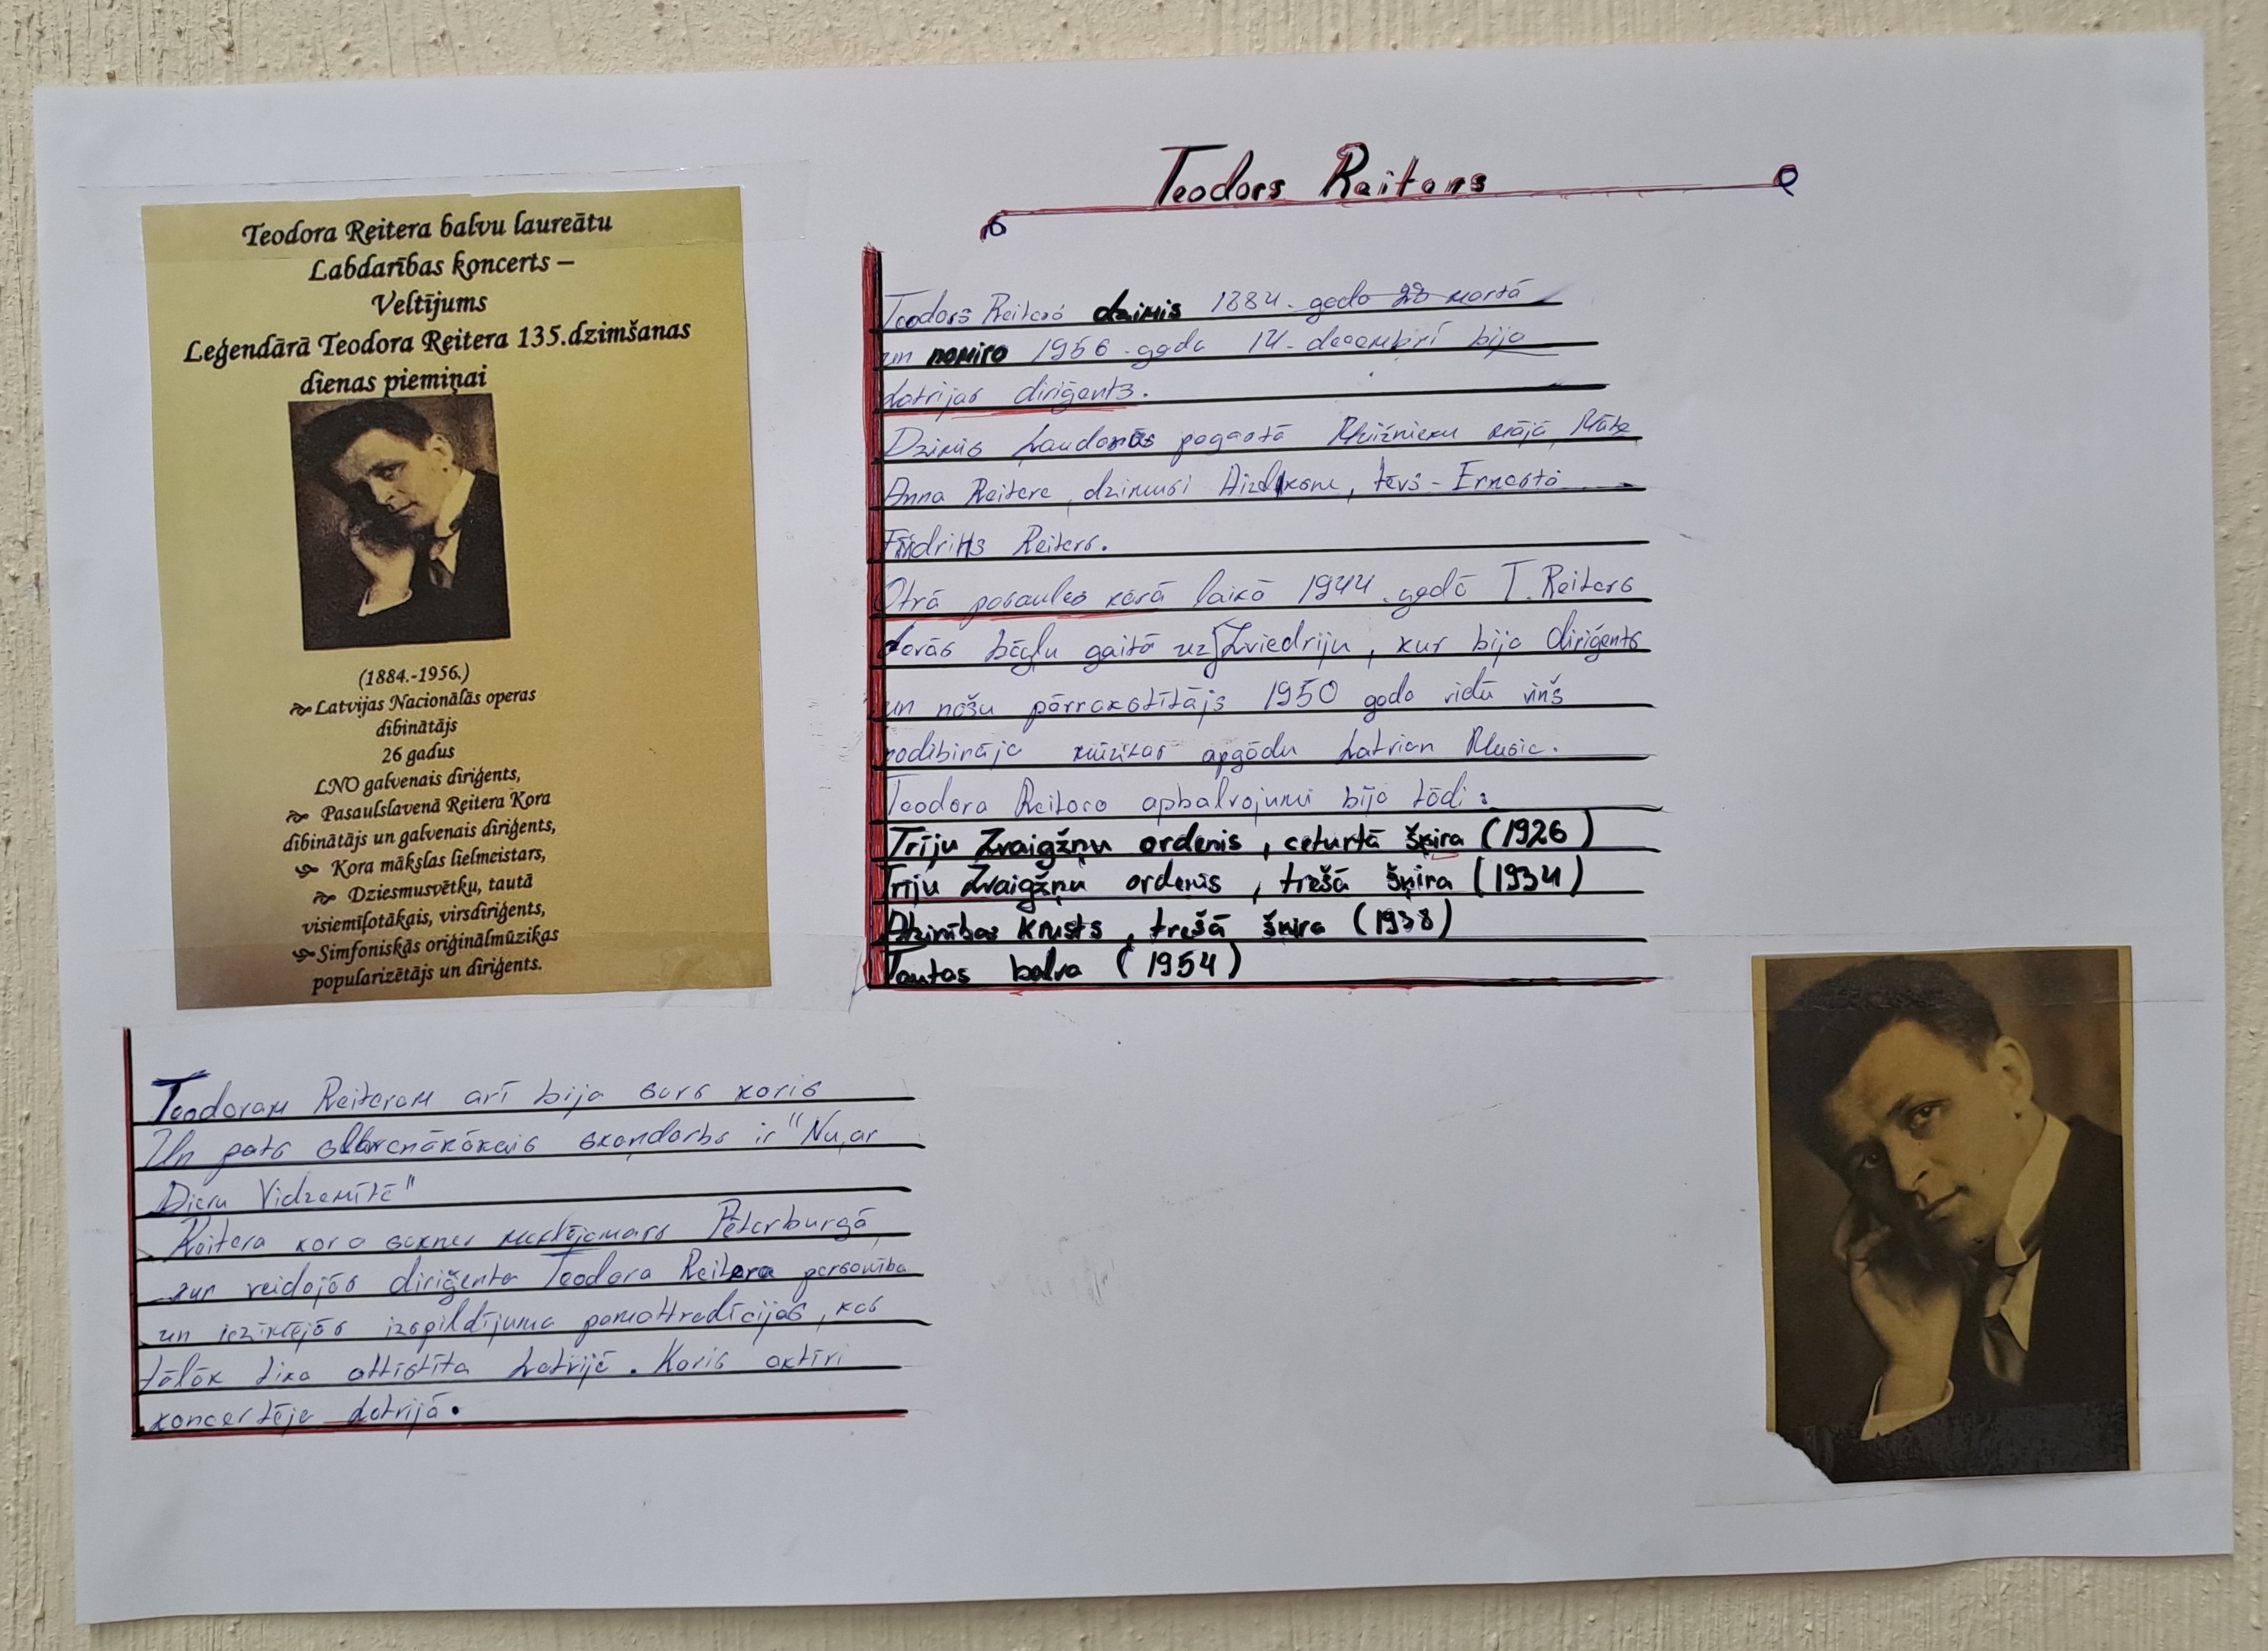 Teodors Reiters
Teodora Reitera balvu laureātu
Labdarības koncerts –
Veltījums
Leģendārā Teodora Reitera 135.dzimšanas
dienas piemiņai
(1884.-1956.)
Latvijas Nacionālās operas
dibinātājs
26 gadus
LNO galvenais diriģents,
Pasaulslavenā Reitera Kora
dibinātājs un galvenais diriģents,
Kora mākslas lielmeistars,
Dziesmusvētku, tautā
visiemīļotākais, virsdiriģents,
Simfoniskās oriģinālmūzikas
popularizētājs un diriģents.
Teodors Reiters dzimis 1884. gada 23 martā
un nomira 1956. gada 14. decembrī bija
Latvijas diriģents.
Dzimis Ļaudonas pagastā Muižnieku mājā, Māte
Anna Reitere, dzimusi, tēvs - Ernests
Reiters.
Otrā pasaules karā laikā 1944. gadā T. Reiters
devās bēgļu gaitā uz Zviedriju, kur bija diriģents
un nošu pārrakstītājs 1950 gada vidū viņš
nodibināja mūzikas apgādu Latvian Music.
Teodora Reitera apbalvojumi bija tādi:
Trīju Zvaigžņu ordenis, ceturtā šķira (1926)
Trīju Zvaigžņu ordenis, trešā šķira (1934)
Atzinības Krusts, trešā šķira (1938)
Tautas balva (1954)
Teodoram Reiteram arī bija savs koris
Un pats skandarbs ir "Nu, ar
Dievu Vidzemītē"
Reitera kora saknes meklējamars Pēterburgā,
kur veidojās diriģenta Teodora Reitera personība
un iezīmējās izspildījuma pamattradīcijas, kas
tālāk tika attīstīta Latvijā. Koris aktīvi
koncertēja Latvijā.